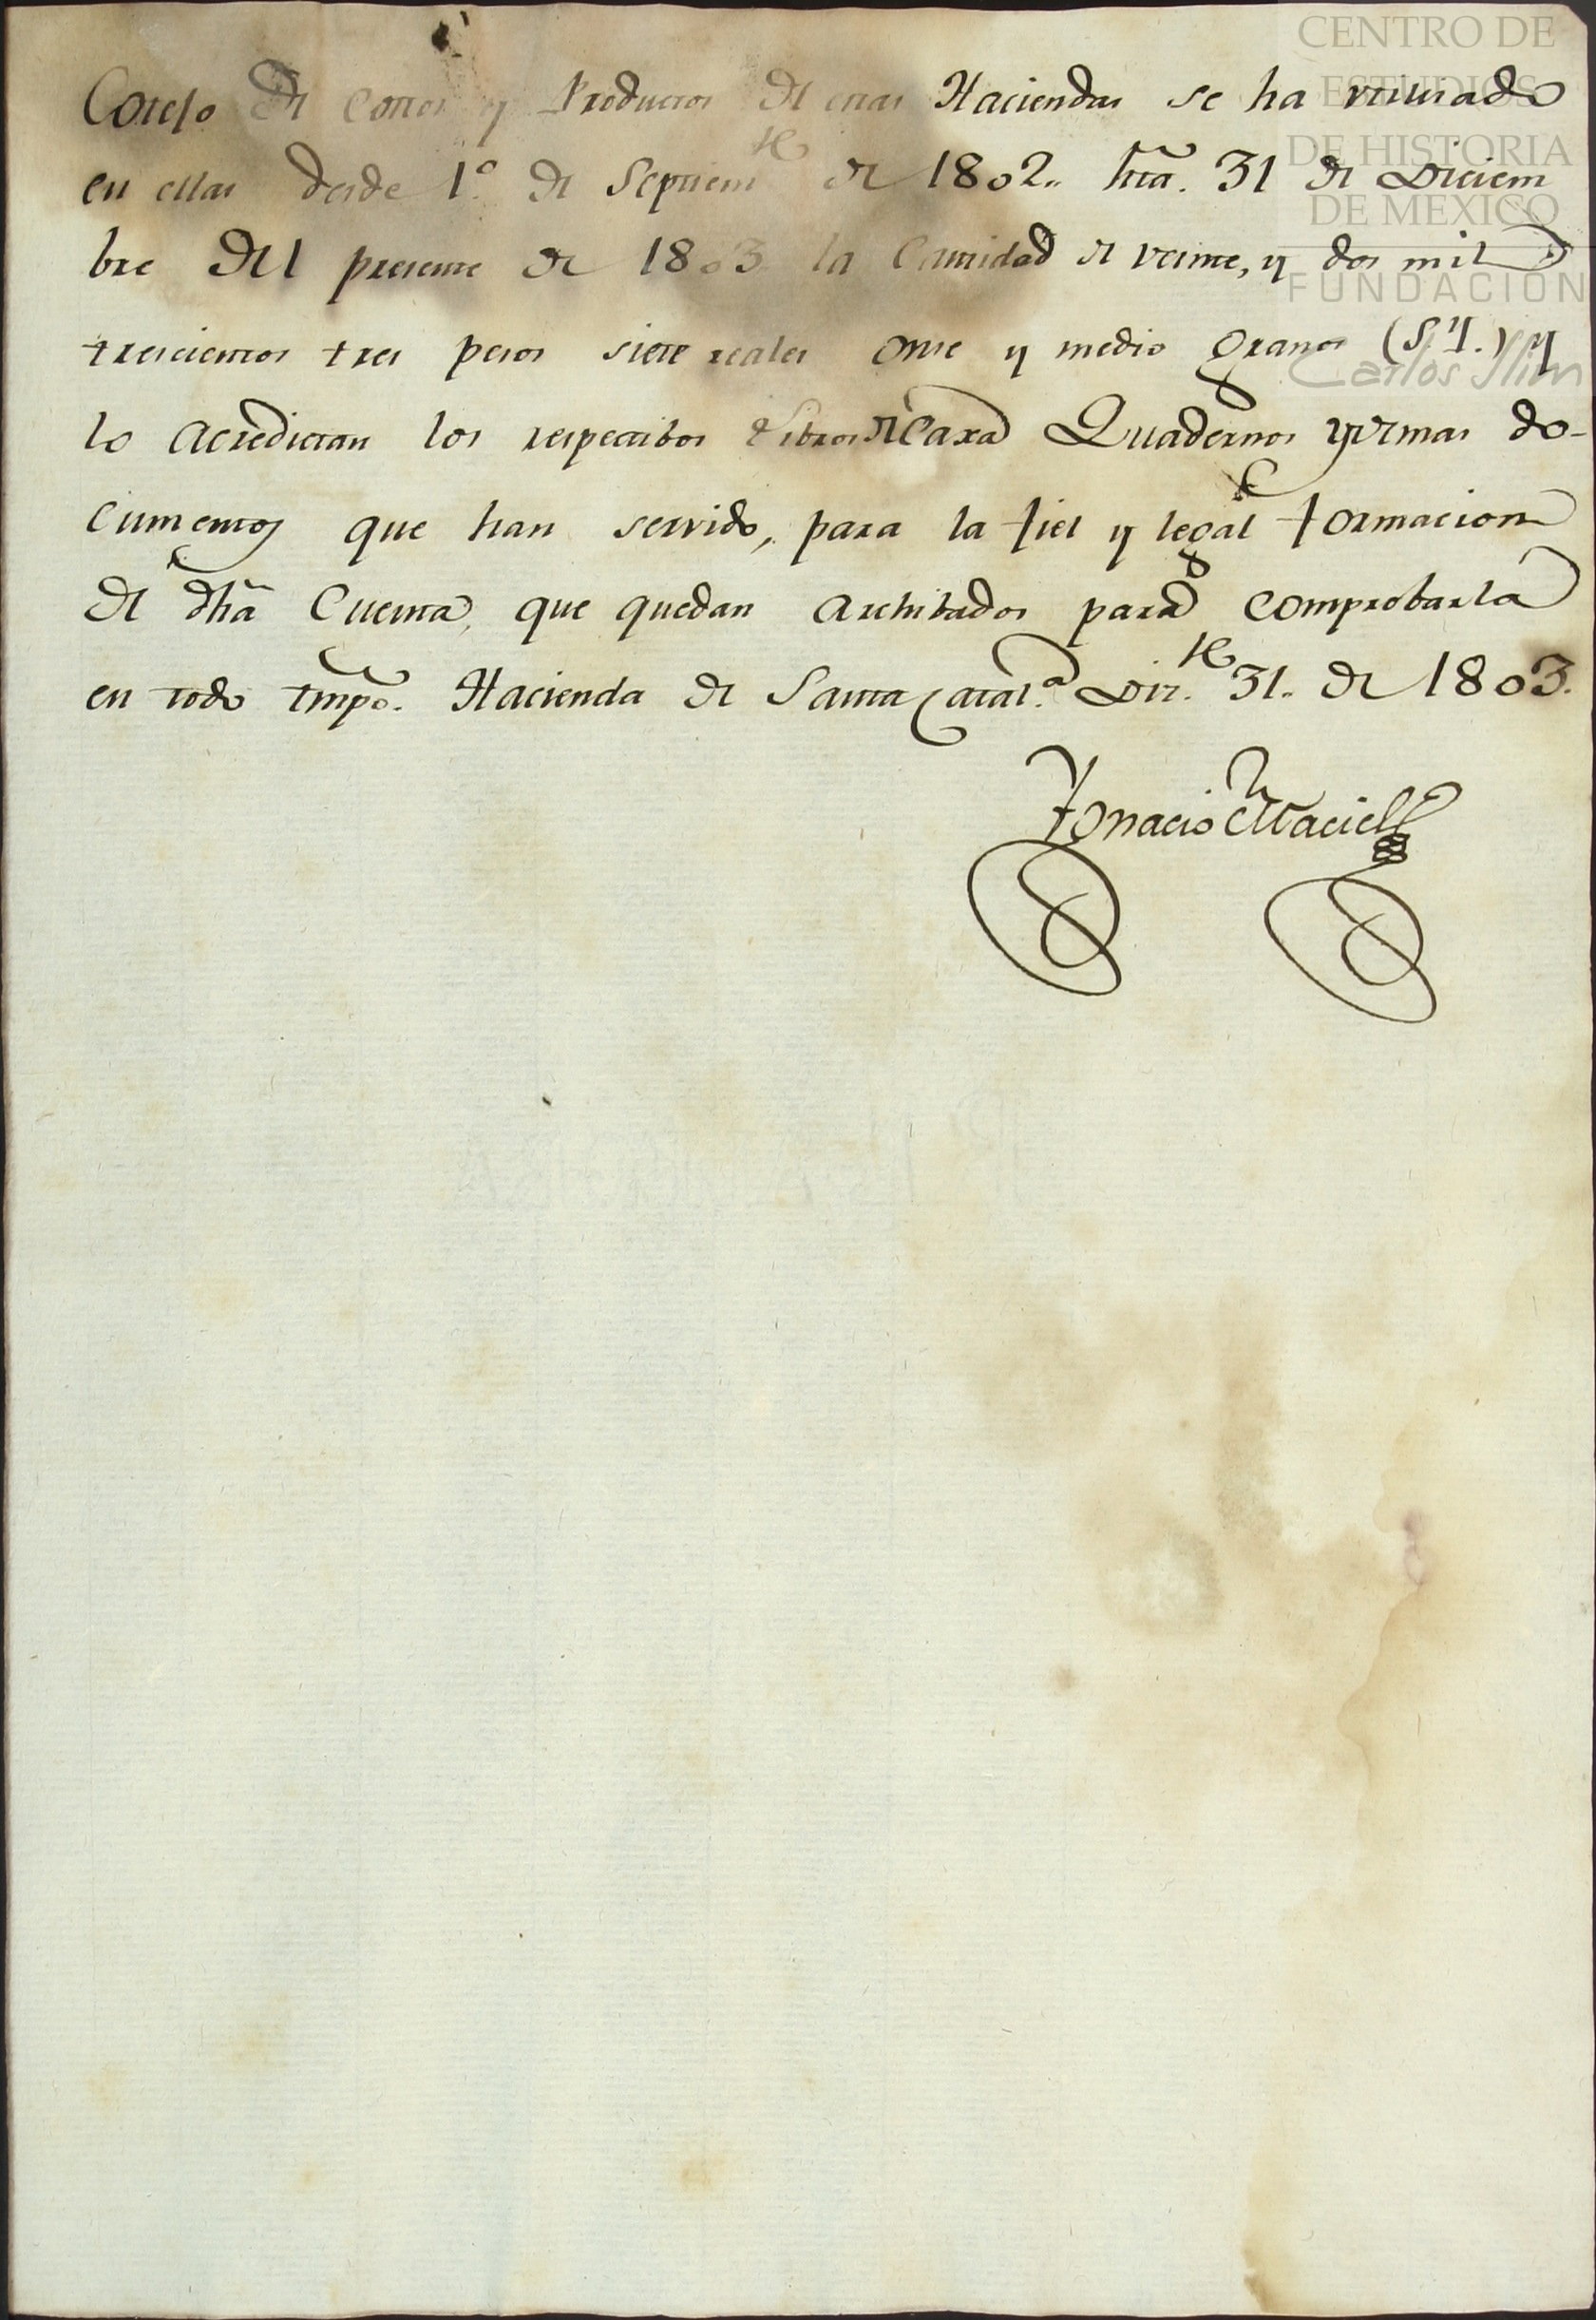 Cotejo de Costos y Productos de estas Haciendas se ha utilisado
en ellas desde 1.º de Septiem.re de 1802,, hta. 31 de Diciem
bre del presente de 1803 la Cantidad de veinte, y dos mil
trescientos tres pesos siete reales onse y medio granos (S. Y.) y
lo acreditan los respectibos Libros de Caxa Quadernos y demas do-
cumentos que han servido, para la fiel y legal formacion
de dha Cuenta, que quedan archibados para comprobarla
en todo tmpo. Hacienda de Santa Catal.a Diz.re 31,, de 1803.
Ygnacio Maciel
CENTRO DE
ESTUDIOS
DE HISTORIA
DE MEXICO
FUNDACION
Carlos Slim